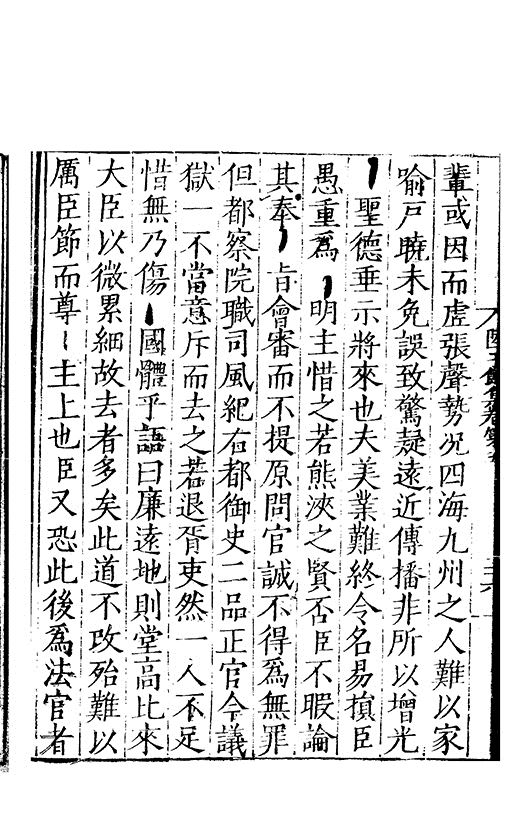 輩或因而虛張聲勢况四海九州之人難以家
喻戸曉未免誤致驚疑遠近傳播非所以增光
聖德垂示將來也夫美業難終令名易損臣
愚重爲明主惜之若熊浹之賢否臣不暇論
其奉旨會審而不提原問官誠不得爲無罪
但都察院職司風紀右都御史二品正官今議
獄一不當意斥而去之若退胥吏然一人不足
惜無乃傷國體乎語曰廉遠地則堂高比來
大臣以微累細故去者多矣此道不改殆難以
厲臣節而尊主上也臣又恐此後爲法官者